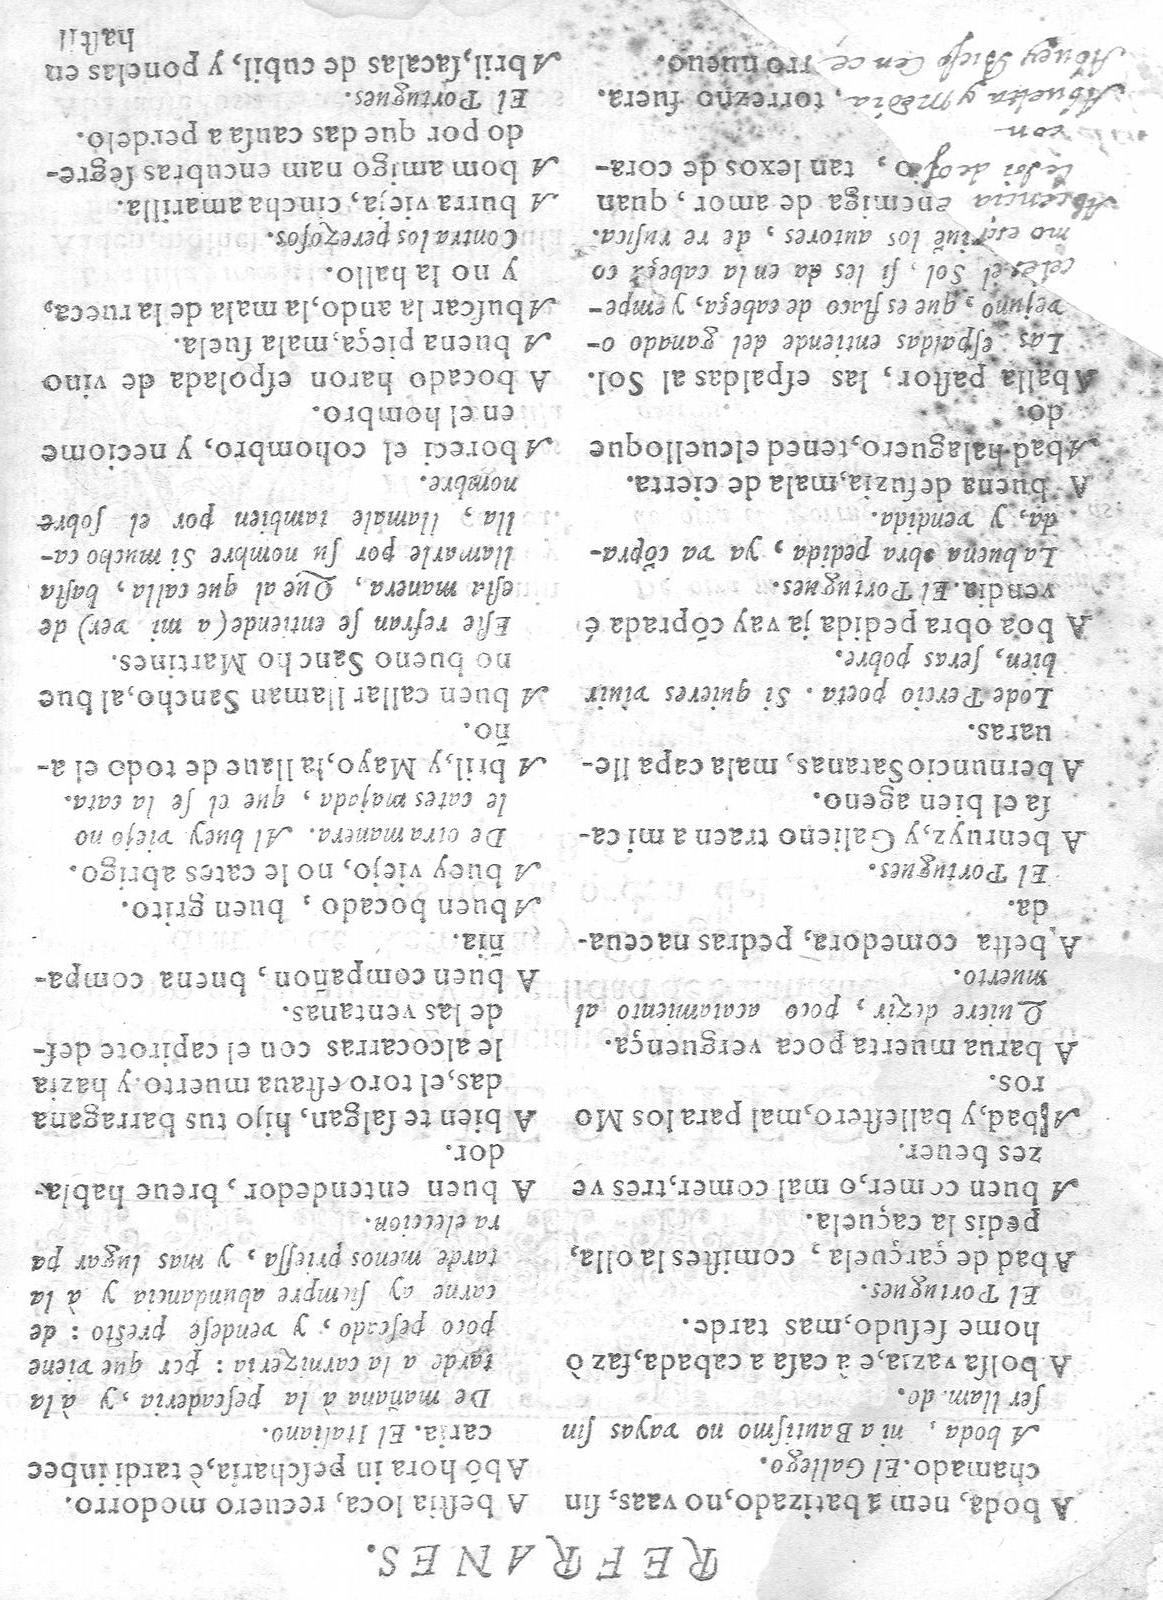 REFRANES.
A boda, nem a batizado, no vaas, ſin
chamado. El Gallego.
A boda, ni a Bautiſmo no vayas ſin
ſer llam do.
A bolſa vazia, e à caſa acabada, faz ò
home ſeſudo, mas tarde.
El Portugues.
Abad de çarçuela, comiſtes la olla,
pedis la caçuela.
A buen comer, o mal comer, tres ve
zes beuer.
Abad, y balleſtero, mal para los Mo
ros.
A barua muerta poca verguença.
Quiere dezir, poco acatamiento al
muerto.
A beſta comedora, pedras na ceua-
da.
El Portugues.
Abenruyz, y Galieno traen a mi ca-
ſa el bien ageno.
Abernuncio Satanas, mala capa lle-
uaras.
Lo de Percio poeta. Si quieres viuir
bien, ſeras pobre.
A boa obra pedida ja vay cõprada é
vendia. El Portugues.
La buena obra pedida, ya va cõpra-
da, y vendida.
A buena deſuzia, mala de cierta.
Abad halaguero, tened el cuello que
do.
Aballa paſtor, las eſpaldas al Sol.
Las eſpaldas entiende del ganado o-
vejuno, que es flaco de cabeça, y empe-
cele el Sol, ſi les da en la cabeça co
mo eſcriuẽ los autores, de re ruſica.
Abſencia enemiga de amor, quan
le ſoi de ojo, tan lexos de cora-
con
Abuelta y media, torrezno fuera.
A buey Biejo Cence rro nueuo.
A beſtia loca, recuero modorro.
A bõ hora in peſcharia, è tardi in bec
caria. El Italiano.
De mañana à la peſcaderia, y, à la
tarde a la carnizeria: por que viene
poco peſcado, y vendeſe preſto: de
carne ay ſiempre abundancia y à la
tarde menos prieſſa, y mas lugar pa
ra eleccion.
A buen entendedor, breue habla-
dor.
A bien te ſalgan, hijo tus barragana
das, el toro eſtaua muerto. y hazia
le alcocarras con el capirote deſ-
de las ventanas.
A buen compañon, buena compa-
ñia.
A buen bocado, buen grito.
A buey viejo, no le cates abrigo.
De otra manera. Al buey viejo no
le cates majada, que el ſe la cata.
Abril, y Mayo, la llaue de todo el a-
ño.
A buen callar llaman Sancho, al bue
no bueno Sancho Martines.
Eſte refran ſe entiende (a mi ver) de
eſta manera, Que al que calla, baſta
llamarle por ſu nombre Si mucho ca-
lla, llamale tambien por el ſobre
nombre.
Aboreci el cohombro, y neciome
en el hombro.
A bocado haron eſpolada de vino
A buena pieça, mala fuela.
A buſcar la ando, la mala de la rueca,
y no la hallo.
Contra los perezoſos.
A burra vieja, cincha amarilla.
A bom amigo nam encubras ſegre-
do por que das cauſa a perdelo.
El Portugues.
Abril, ſacalas de cubil, y ponelas en
haſtil